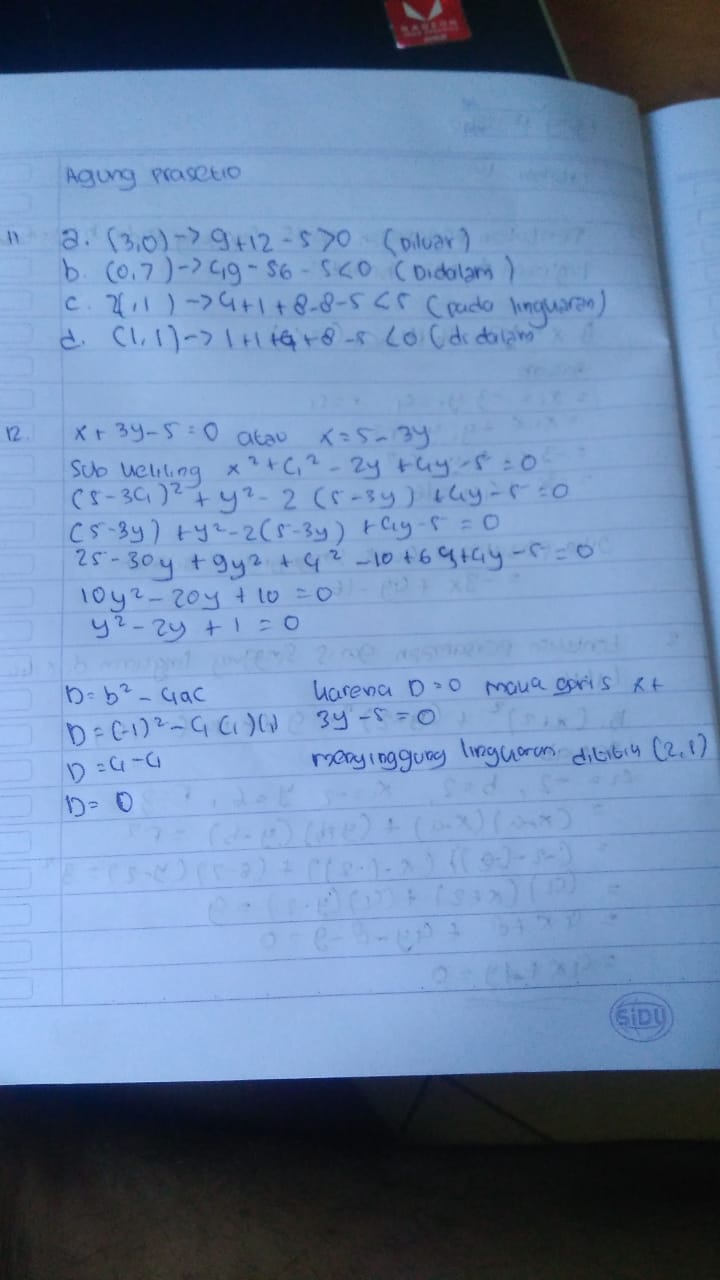 RADEON
Agung Prasetio
11 a. (3,0) -> 9+12-5>0 (Diluar)
b. (0,7) -> 49-56-5<0 (Didalam)
c. 2(,1) -> 4+1+8-8-5<5 (pada lingkaran)
d. (1,1) -> 1+1+4+8-5 <0 (di dalam
12. x+3y-5=0 atau x=5-3y
Sub keliling x²+y²-2y+4y-5=0
(5-3y)²+y²-2(5-3y)+4y-5=0
(5-3y)+y²-2(5-3y)+4y-5=0
25-30y+9y²+y²-10+6y+4y-5=0
10y²-20y+10=0
y²-2y+1=0
D=b²-4ac karena D=0 maka garis x+
D=(-1)²-4(1)(1) 3y-5=0
D=4-4 menyinggung lingkaran dititik (2,1)
D=0
SiDU